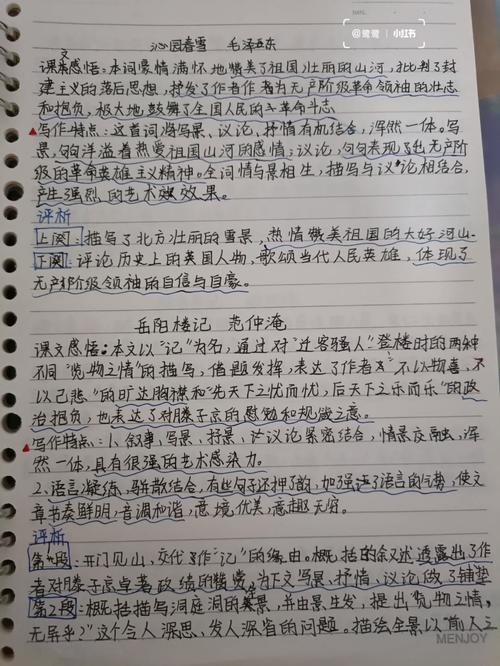 @鹭鹭 | 小红书
沁园春雪 毛泽东
课文感悟:本词豪情满怀地赞美了祖国壮丽的山河,批判了封
建主义的落后思想,抒发了作者作为无产阶级革命领袖的壮志
和抱负,极大地鼓舞了全国人民的革命斗志
写作特点:这首词将写景、议论、抒情有机结合,浑然一体。写
景,句句洋溢着热爱祖国山河的感情;议论,句句表现了无产阶
级的革命英雄主义精神。全词情与景相生,描写与议论相结合,
产生强烈的艺术效果。
评析
上阕:描写了北方壮丽的雪景,热情赞美祖国的大好河山.
下阕:评论历史上的英国人物,歌颂当代人民英雄,体现了
无产阶级领袖的自信与自豪。
岳阳楼记 范仲淹
课文感悟:本文以“记”为名,通过对“迁客骚人”登楼时的两种
不同“览物之情”的描写,借题发挥,表达了作者“不以物喜,不
以己悲”的旷达胸襟和“先天下之忧而忧,后天下之乐而乐”的政
治抱负,也表达了对滕子京的慰勉和规箴之意。
写作特点:1、叙事、写景、抒景、议论紧密结合,情景交融,浑
然一体,具有很强的艺术感染力。
2、语言凝练,骈散结合,有些句子还押了韵,加强了语言的气势,使文
章节奏鲜明,音调和谐,意境优美,意趣无穷。
评析
第1段:开门见山,交代了作“记”的缘由。概括的叙述透露出了作
者对滕子京卓著政绩的赞赏,为下文写景、抒情、议论做了铺垫
第2段:概括描写洞庭洞的全景,并由景生发,提出“览物之情,
无异乎?”这个令人深思、发人深省的问题。描绘全景以“前人之
MENJOY